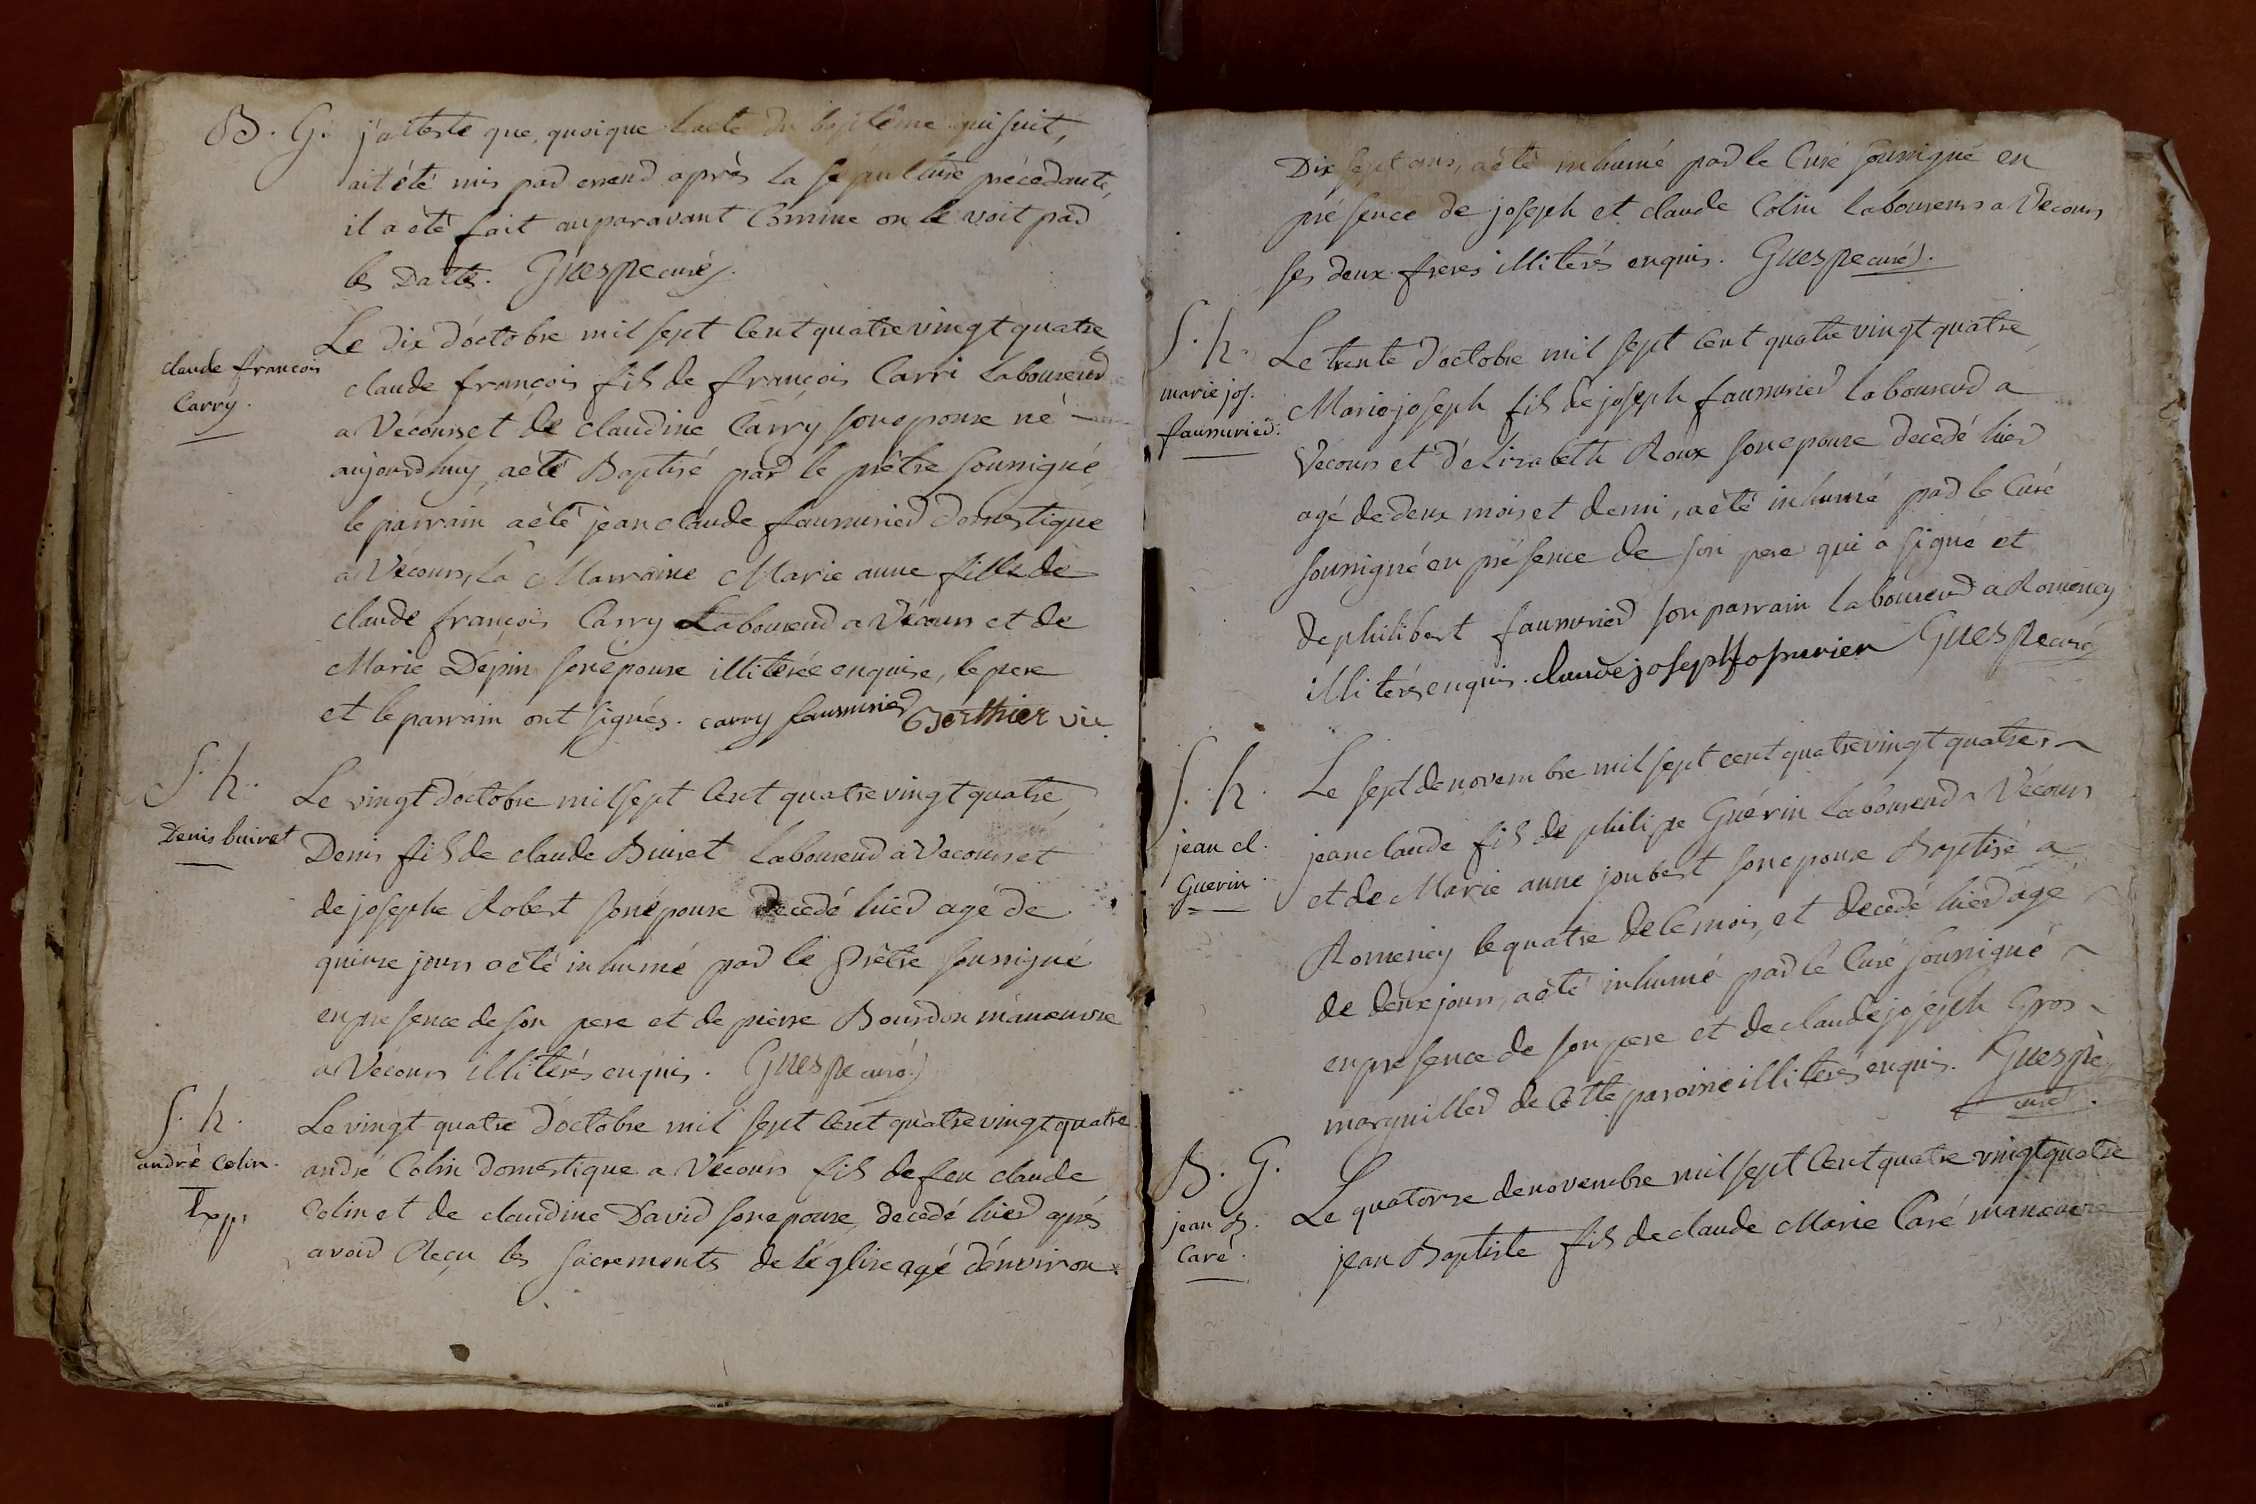 B. G. j'atteste que, quoique l'acte du baptême qui suit,
ait été mis par erreur après la sépulture précédante,
il a été fait auparavant Comme on le voit par
les Dattes. Guespe curé.
claude francois
Carry.
Le dix d'octobre mil sept Cent quatre vingt quatre
claude françois fils de françois Carri Laboureur
a Vécours et de claudine Carry son epouse né
aujourdhuy, a été Baptisé par le prêtre soussigné
le parrain a été jean claude faussurier Domestique
a Vécours, la Marraine Marie anne fille de
claude françois Carry Laboureur a Vécours et de
Marie Depin son epouse illiterée enquise, le pere
et le parrain ont signés. carry faussurier Berthier vic.
S. h.
Denis buiret
Le vingt d'octobre mil sept Cent quatre vingt quatre,
Denis fils de claude Buiret Laboureur a Vecours et
de josephe Robert son épouse decedé hier agé de
quinze jours a été inhumé par le Prêtre soussigné
en presence de son pere et de pierre Bourdon manœuvre
a Vécours illiterés enquis. Guespe curé.
S. h.
andré Colin.
Le vingt quatre d'octobre mil sept Cent quatre vingt quatre
andré Colin domestique a Vécours fils de feu claude
Colin et de claudine David son epouse, decedé hier après
avoir Reçu les sacrements de l'église agé d'environ
Dix sept ans, a été inhumé par le Curé soussigné en
présence de joseph et claude Colin laboureurs a Vécours
ses deux freres illiterés enquis. Guespe curé.
S. h.
marie jos.
faussurier.
Le trente d'octobre mil sept Cent quatre vingt quatre,
Marie joseph fils de joseph faussurier laboureur a
Vécours et d'elizabeth Roux son epouse decedé hier
agé de deux mois et demi, a été inhumé par le Curé
soussigné en présence de son pere qui a signé et
de philibert faussurier son parrain laboureur a Romeney
illiterés enquis. claude joseph fosurier Guespe curé
S. h.
jean cl.
Guerin
Le sept de novembre mil sept cent quatre vingt quatre,
jean claude fils de philipe Guérin laboureur a Vécours
et de Marie anne joubert son epouse Baptisé a
Romeney le quatre de ce mois, et decedé hier agé
de deux jours, a été inhumé par le Curé soussigné
en presence de son pere et de claude joseph Gros
marguiller de Cette paroisse illiterés enquis. Guespe
curé.
B. G.
jean B.
Caré.
Le quatorze de novembre mil sept Cent quatre vingt quatre
jean Baptiste fils de claude Marie Caré manœuvre